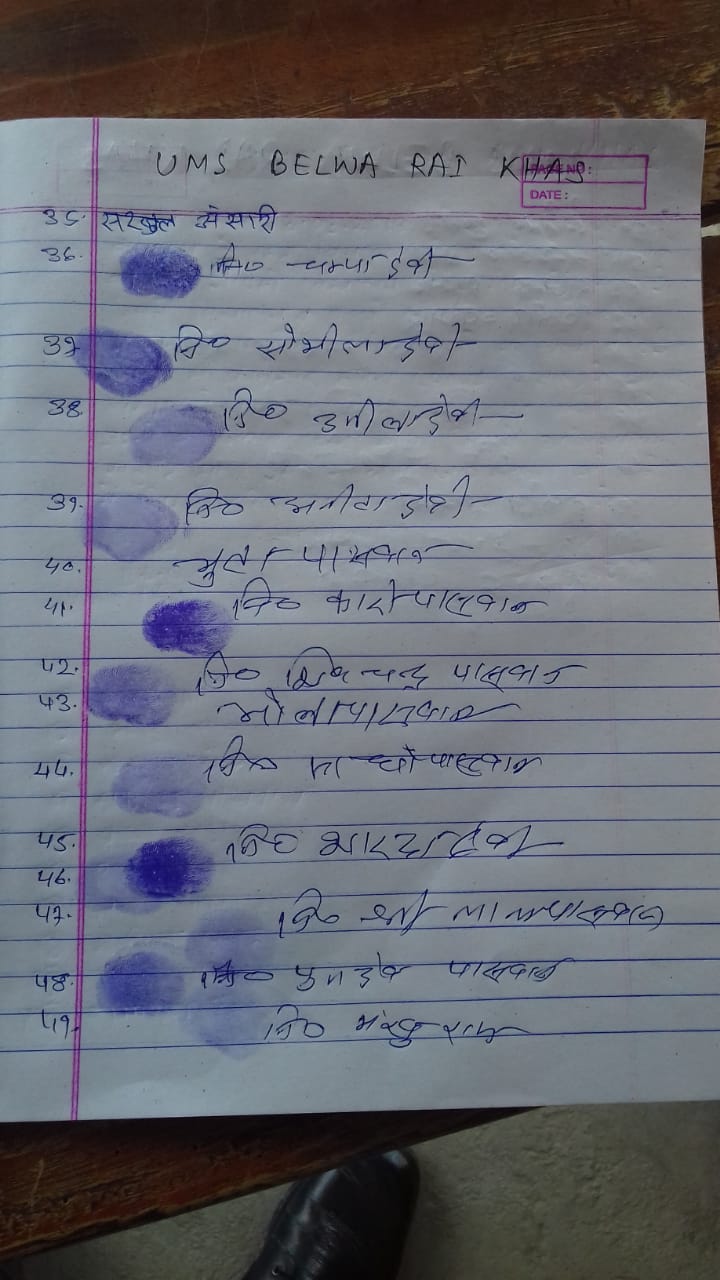 UMS BELWA RAI KHAS
PAGE NO:
DATE:
35. सरजुल अंसारी
36. नि० चम्पा देवी
37 नि० सोभीला देवी
38 नि० उर्मीला देवी
39. नि० अनीता देवी
40. पासवान
41. नि० कारी पासवान
42. नि० शिव चन्द्र पासवान
43. भोला पासवान
44. नि० पासवान
45. नि० शारदा देवी
46.
47. नि० पासवान
48. नि० देव पासवान
49. नि० राम